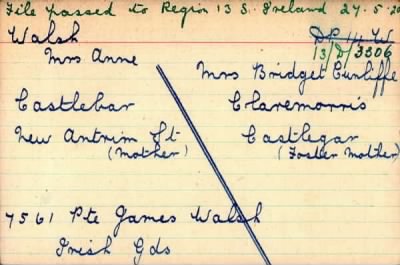 File passed to Region 13 S. Ireland 27.5.20
Walsh
13/D/3306
Mrs Anne
Mrs Bridget Cunliffe
Castlebar
Claremorris
New Antrim St
Castlegar
(Mother)
(Foster Mother)
7561 Pte James Walsh
Irish Gds